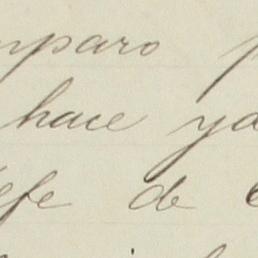 mparo
hace ya
efe de